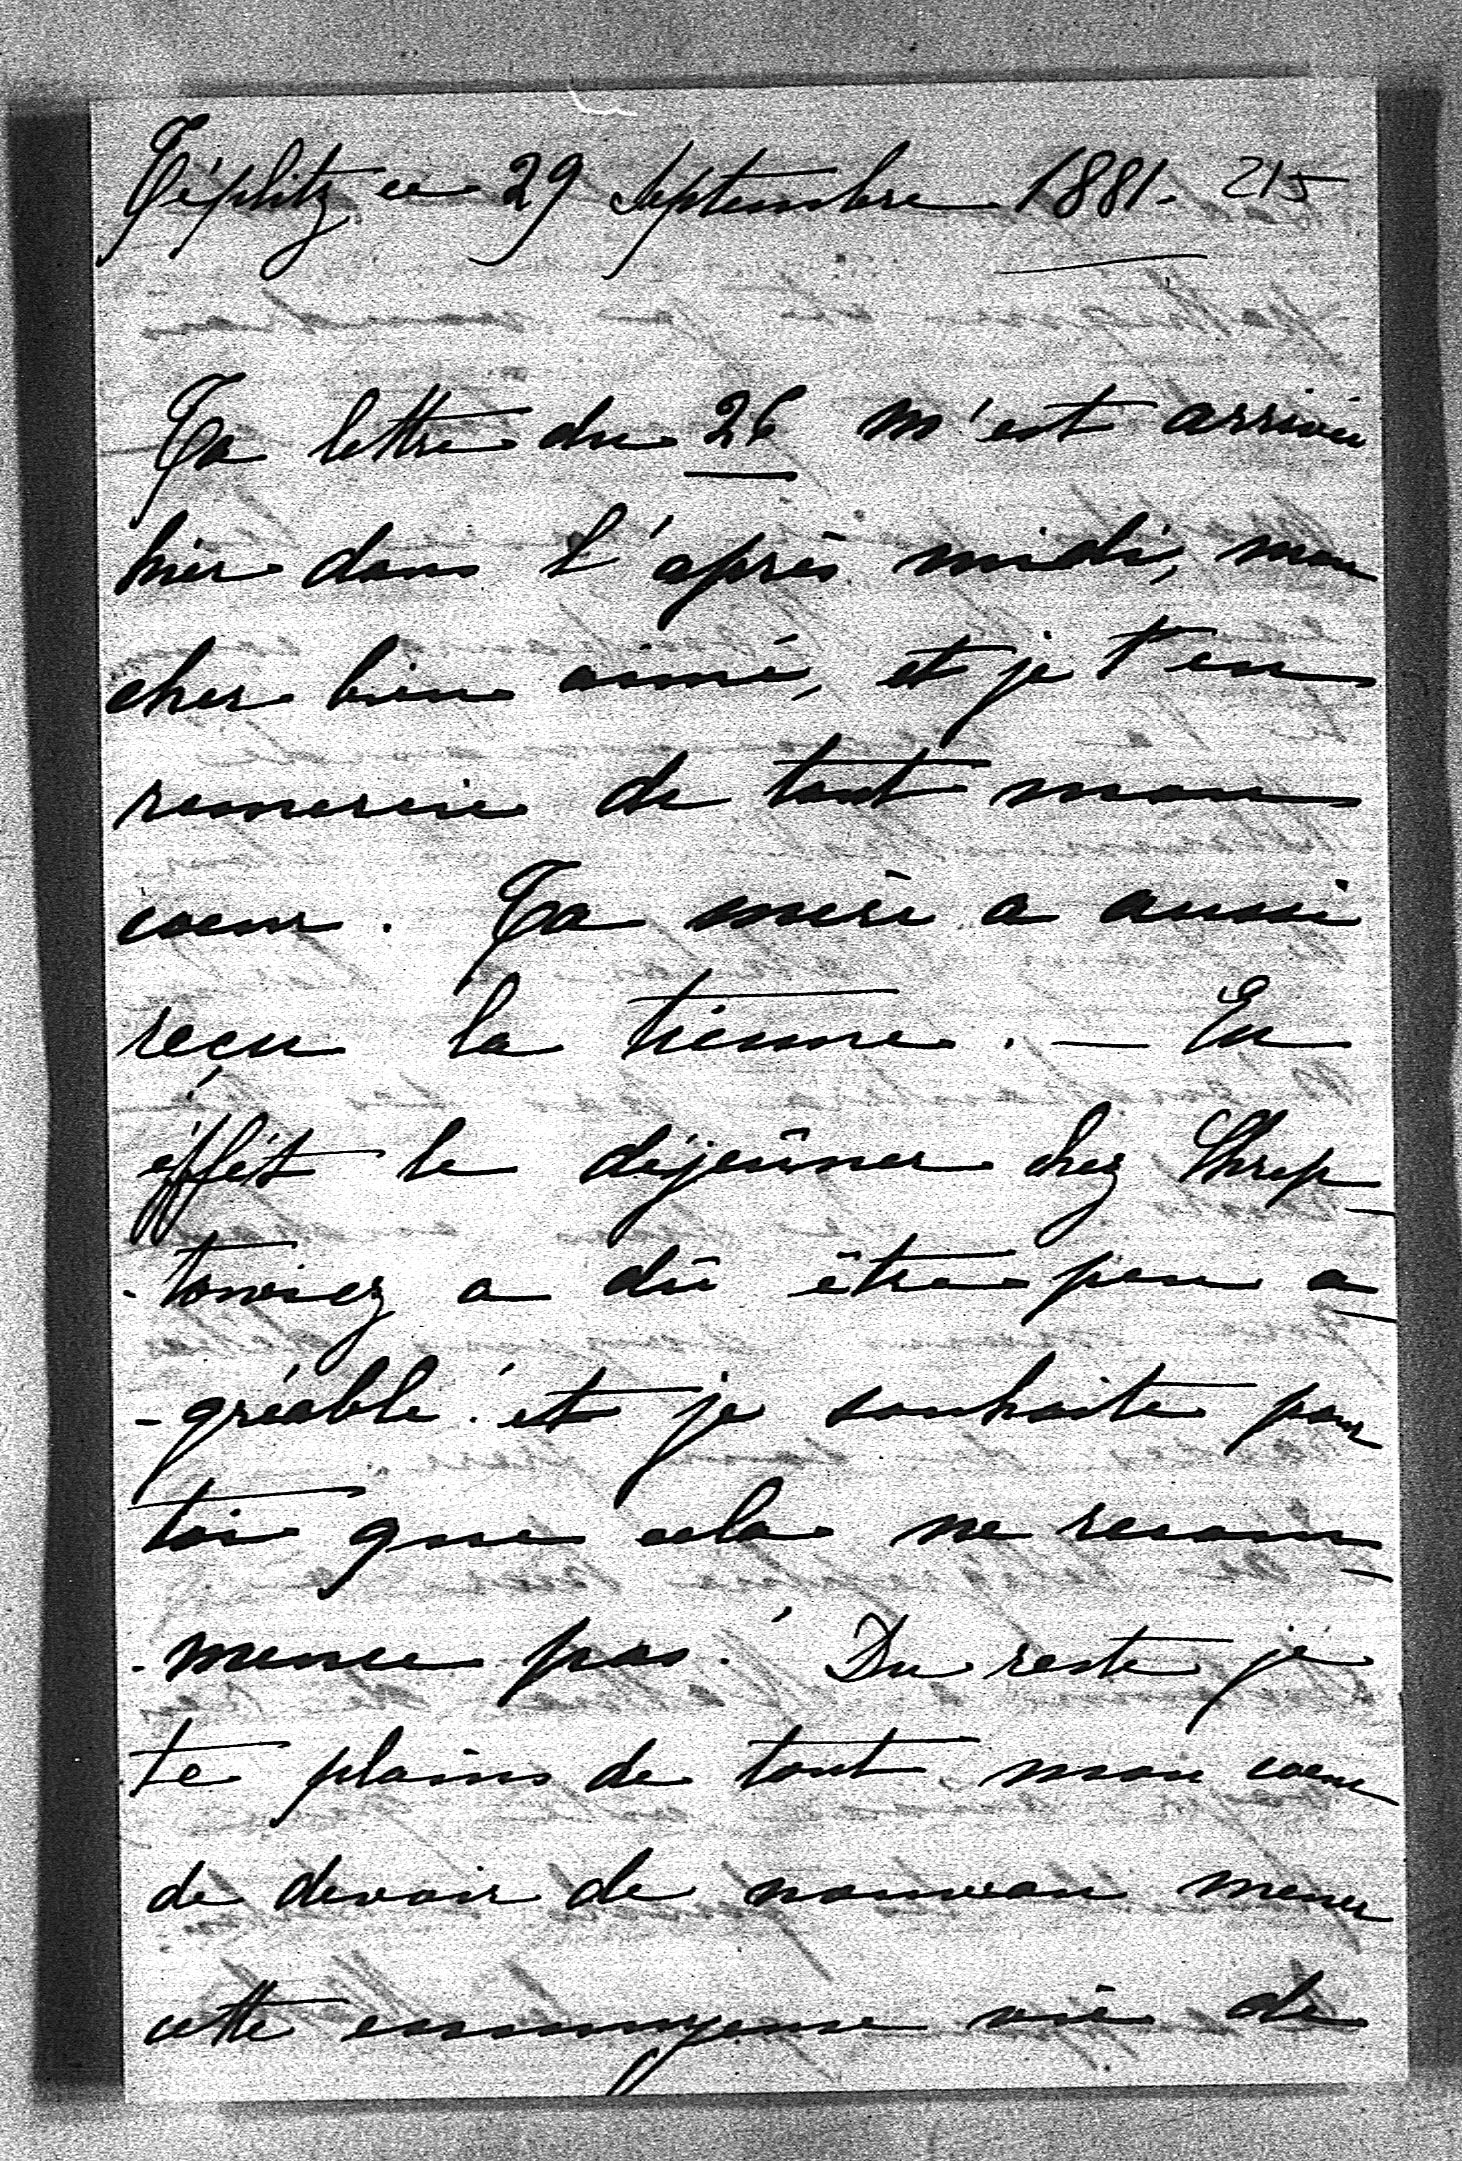 Téplitz ce 29 Septembre 1881. 215
Ta lettre du 26 m'est arrivée
hier dans l'après midi, mon
cher bien aimé, et je t'en
remercie de tout mon
coeur. Ta mère a aussi
reçu la tienne. — En
éffét le déjeûner chez
a dû être peu a-
-gréable et je souhaite pour
toi que cela ne recom-
-mence pas. Du reste je
te plains de tout mon coeur
de devoir de nouveau mener
cette ennuyeuse vie de